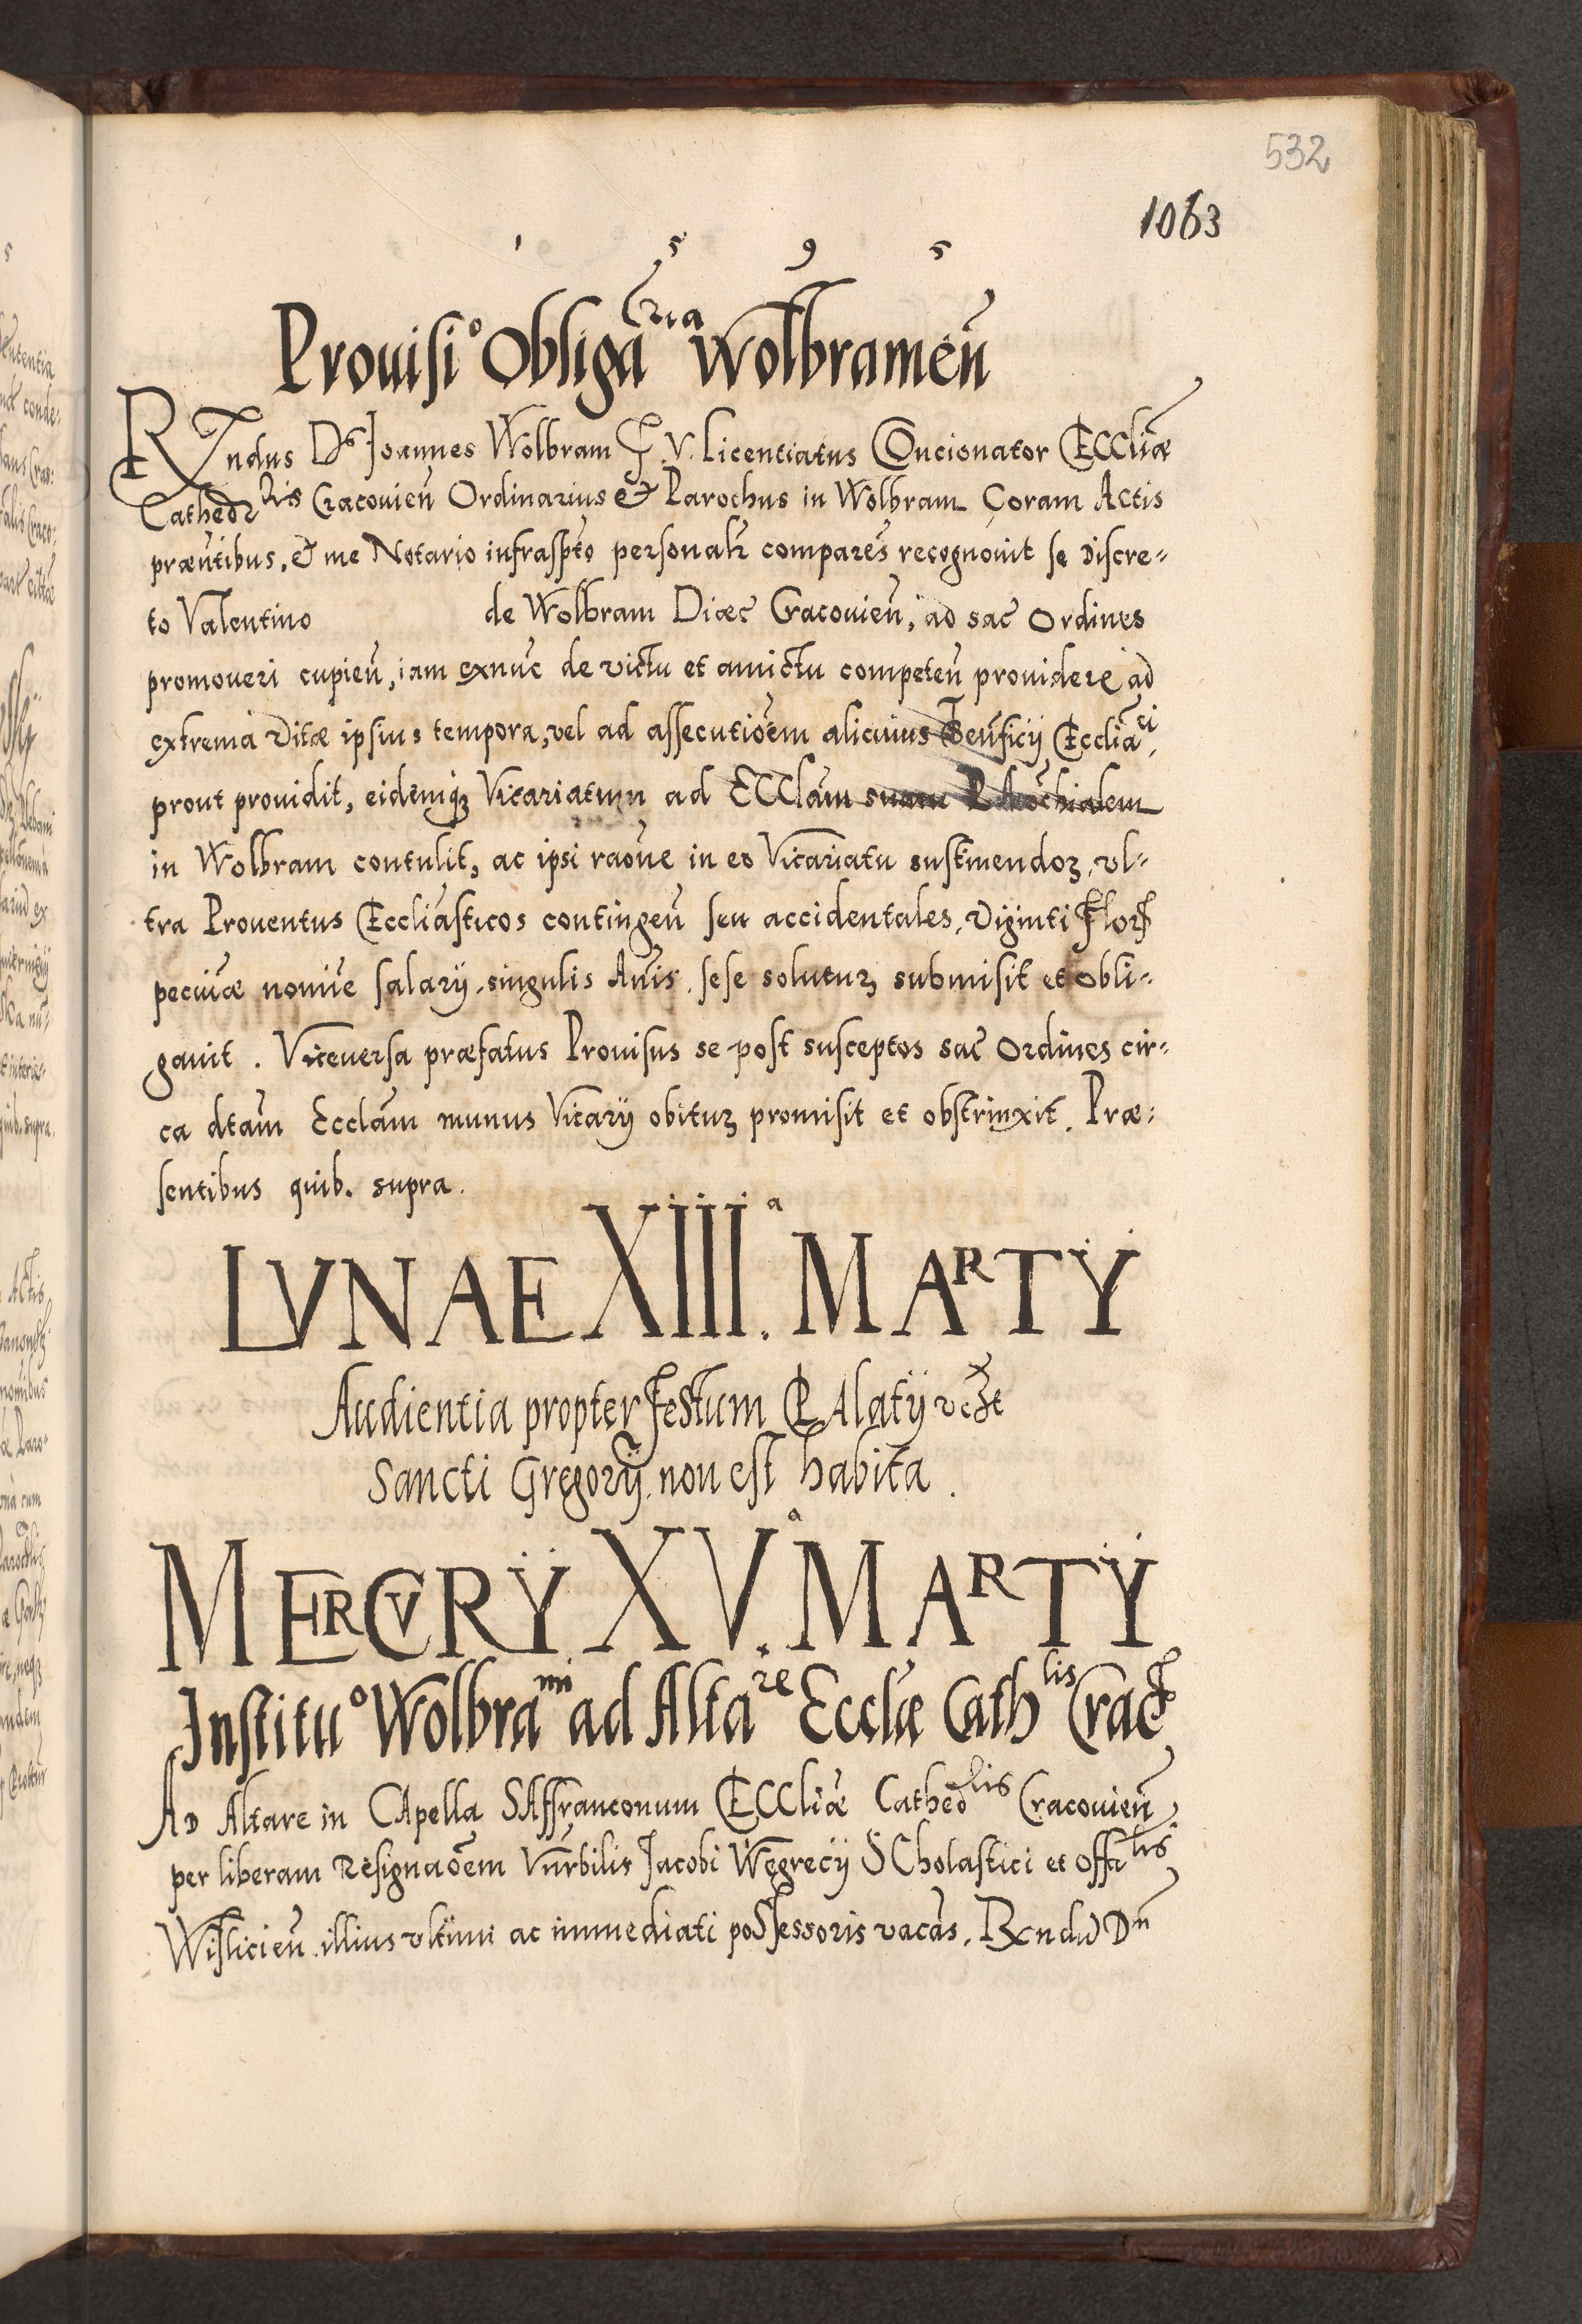 532
1063
1 5 9 5
Prouisi° Obligãria Wolbrameñ
Rndus Ds Joannes Wolbram J. V. Licentiatus Concionator Eccliæ
Cathedrlis Cracouieñ Ordinarius et Parochus in Wolbram Coram Actis
præntibus, et me Notario infrasptõ personalr comparẽs recognouit se Discre=
to Valentino de Wolbram Diæc Cracouieñ, ad sac Ordines
promoueri cupieñ, iam exnũc de victu et amictu competeñ prouidere ad
extrema Vitæ ipsius tempora, vel ad assecutiõem alicuius Beñficij Eccliãei,
prout prouidit, eidemqȝ Vicariatum ad Ecclãm suam Parochialem
in Wolbram contulit, ac ipsi raõne in eo Vicariatu sustinendoȝ, vl=
tra Prouentus Eccliãsticos contingeñ seu accidentales, Viginti Flor
pecuniæ nomiñe salarij, singulis Añis, sese soluturȝ submisit et obli=
gauit. Viceuersa præfatus Prouisus se post susceptos sac Ordines cir=
ca dtam Ecclãm munus Vicarij obiturȝ promisit et obstrinxit. Præ=
sentibus quib. supra.
LVNAE XIIII.a MARTY
Audientia propter Festum Palatij vczt
Sancti Gregorij, non est habita.
MERCVRY XV.a MARTY
Institu° Wolbrami ad Altare Ecclæ Cathlis Crac
AD Altare in Capella Saffranconum Eccliæ Cathedlis Cracouieñ
per liberam Resignaõem Vñrbilis Jacobi Węgrecij Scholastici et Offilis
Wislicieñ illius vltimi ac immediati possessoris vacãs, Rndu Dn